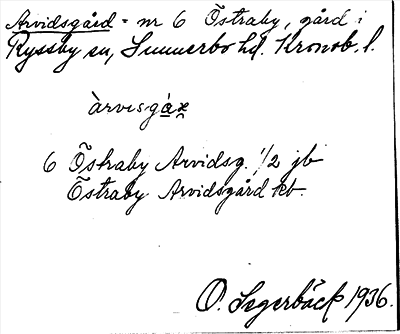 Arvidsgård = nr 6 Östraby, gård i
Ryssby sn, Sunnerbo hd. Kronob. l.
àrvisgáʀ
6 Östraby Arvidsg. 1/2 jb
Östraby Arvidsgård kb.
O. Segerbäck 1936.